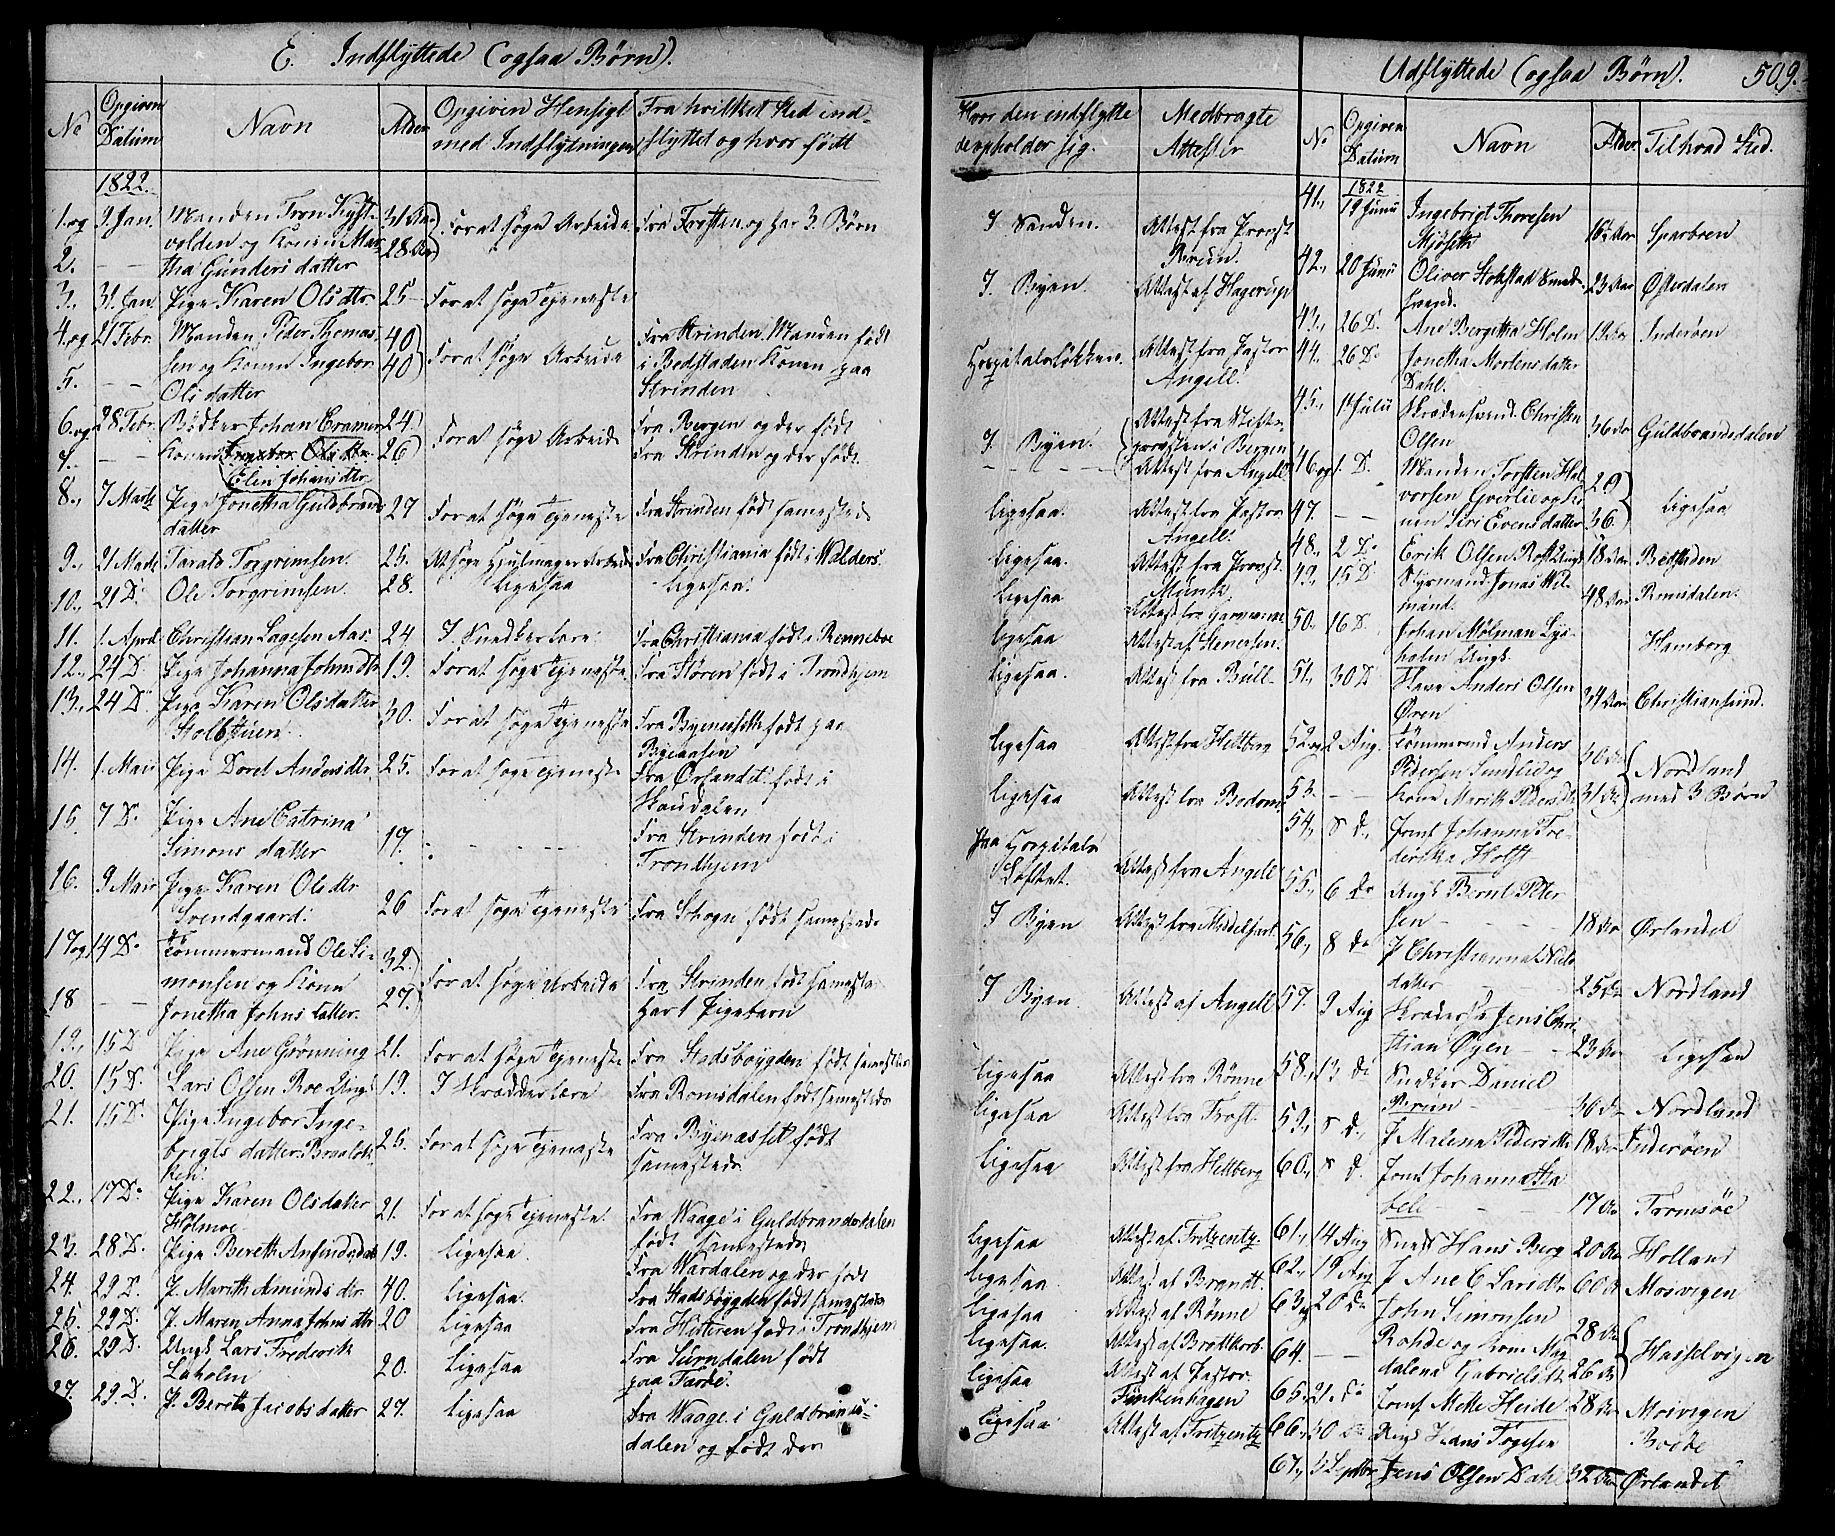 E. Indflyttede (ogsaa Børn).
No
Opgiven Datum
Navn
Alder
Opgiven Hensigt med Indflytningen
Fra hvilket Sted indflyttet og hvor født
Hvor den indflyttede opholder sig.
Medbragte Attester
1822.
1. og 9 Jan. Manden Tron Kyst- 31 Aar For at søge Arbeide Fra Frosten og har 3 Børn I Sanden. Attest fra Provst
volden og Konen Mar- 28 Aar Bruun.
2. — — tha Gunders datter
3. 31. Jan. Pige Karen Olsdtr 25 For at søge Tjeneste I Byen Attest af Hagerup
4. og 21 Febr. Manden Peder Thomas 40 For at søge Arbeide Fra Strinden Manden født Hospitalsløkken. Attest fra Pastor
sen og Konen Ingebor 40 i Bedstaden Konen paa Angell.
5. — — Ols datter Strinden
6. og 28 Febr. Bødker Johan Cramer 24 For at søge Arbeide Fra Bergen og der født I Byen. Attest fra Stifts-
provsten i Bergen
7. — — Konen Elen Johansdtr 26 Fra Strinden og der født. Attest fra Angell
8. 7 Marts Pige Jonetha Guldbrands 27 For at søge Tjeneste Fra Strinden født samesteds ligesaa. Attest fra Pastor
datter Angell.
9. 21 Marts Tarald Torgrimsen. 25. At søge Hjulmager Arbeide Fra Christiania født i Walders. ligesaa. Attest fra Provst
10. 21 D. Ole Torgrimsen. 28. ligesaa ligesaa. ligesaa Munk.
11. 1. April Christian Lagesen Aas. 24 I Snedkerlære. Fra Christiania født i Rennebo ligesaa
12. 24 D. Pige Johanna Johnsdtr 19. For at søge Tjeneste Fra Støren født i Trondhjem ligesaa. Attest fra Bull
13. 24 D. Pige Karen Olsdatter 30. For at søge Tjeneste Fra Byenesset født paa ligesaa Attest fra Hellberg
Byeaasen
14. 1. Mai Pige Doret Andersdtr 25. For at søge Tjeneste Fra Ørlandet født i ligesaa Attest fra Bodom
15. 7 D. Pige Ane Catrina 17. — — — Fra Strinden født i Paa Hospitals Attest fra Angell
Simons datter Trondhjem Løkket.
16. 9 Mai Pige Karen Olsdtr 26 For at søge Tjeneste Fra født samesteds I Byen Attest fra Middelfart
Svendgaard.
17 og 14 D. Tømmermand Ole Si- 32. For at søge Arbeide Fra Strinden født sameste. I Byen. Attest af Angell
monsen og Kone
18 — — Jonetha Johns datter. 27. har 1 Pigebarn
19. 15 D. Pige Ane Grønning 21. For at søge Tjeneste Fra Stadsbøygden født samesteds ligesaa Attest fra Rønne
20. 15 D. Lars Olsen Boe Ungk 19. I Skrædderlære Fra Romsdalen født samesteds ligesaa Attest fra Frost
21. 15 D. Pige Ingebor Inge- 25. For at søge Tjeneste Fra Byenesset født ligesaa Attest fra Hellberg
brigts datter samesteds
22. 17 D. Pige Karen Olsdatter 21. For at søge Tjeneste. Fra Waage i Guldbrandsdalen ligesaa Attest af Fritzentz.
Holmoe født samesteds
23. 28 D. Pige Bereth Anfindsdatr 19. ligesaa. Fra Wærdalen og der født ligesaa Attest af Brandt.
24. 29 D. P. Marith Amunds dtr 40. ligesaa. Fra Stadsbøygden født samesteds ligesaa Attest af Rønne
25. 29 D. P. Maren Anna Johns dtr 20 ligesaa Fra Hitteren født i Trondhjem ligesaa. Attest af Brottkorb.
26. 29 D. Ungk Lars Frederik 20. ligesaa Fra Surndalen født ligesaa Attest af Pastor
Laholm paa Farøe. Finkenhagen
27. 29 D. P. Bereth Jacobs datter 27. ligesaa Fra Waage i Guldbrands- ligesaa Attest af Fritzentz
dalen og født der
Udflyttede (ogsaa Børn). 509.
No
Opgiven Datum
Navn
Alder
Til hvad Sted.
1822
41. 19 Junii Ingebrigt Thoresen Mjøseth 16½ Aar Sparboen
42. 20 Junii Oliver Stokstad Smed- 23 Aar Østerdalen
svend.
43. 26 D. Ane Bergitha Holm 19 Aar Inderøen
44. 26 D. Jonetha Mortens datter
Dahl.
45. 1 Julii Skrædersvend. Christen
Olsen 36 Aar Guldbrandsdalen
46 og 1. D. Manden Torsten Hal- 29 ligesaa
vorsen Gverlie og Ko-
47. — — nen Siri Evensdatter 36.
48. 2 D. Erik Olsen 18 Aar Bedstaden
49. 15 D Styrmand. Jonas Wil- 48 Aar Romsdalen.
mand.
50. 16 D. Johan Mølman Lys- Hamborg
holm Ungk.
51. 30 D Anders Olsen 34 Aar Christiansund.
Øren
52 og 2 Aug. Tømmermd Anders 30 Aar Nordland
Pedersen Sundlie og
53. — — Kone Marith Pedersdtr 31 Aar med 3 Børn
54. S d. Jomf Johanna Fre-
derikka Holst
55. 6 do Ungk Bernt Peter
sen — 18 Aar Ørlandet
56. 8 do P Christianna Niels
datter — 25 Aar Nordland
57. 9 Aug Jens Chri-
stian Øyen — 23 Aar ligesaa
58. 13 do Snedker Daniel
Bruun — 36 Aar Nordland
59. S d. P Malena Pedersdtr 18 Aar Inderøen
60. S d. Jomf Johanna
bele — 17 Aar Tromsøe
61. 14 Aug Hans Berg 20 Aar Holland
62. 19 Aug P Ane C Larsdtr 60 Aar Mosvigen
63. 20 do John Simonsen
Rohde og Kone Mag 28 Aar Hasselvigen
64. — — dalena Gabrielsdtr 26 Aar
65. 21. do Jomf Mette Heide 28 Aar Mosvigen
66. 30 do Ungk Hans Fogesen Bodøe
67. 5 Septbr Jens Olsen Dahl 32 Aar Ørlandet